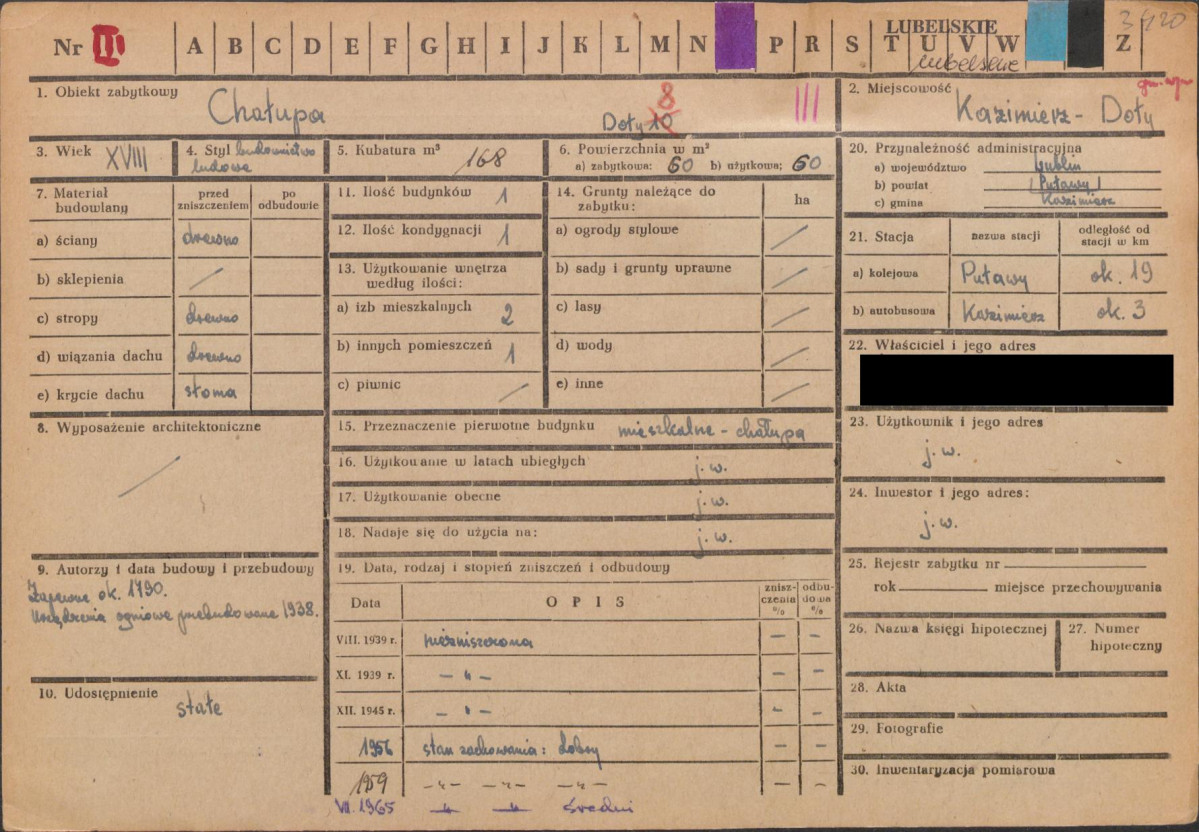 Nr III A B C D E F G H I J K L M N P R S T U V W Z
LUBELSKIE
lubelskie
3420
1. Obiekt zabytkowy
Chałupa
Doty 10
8
III
2. Miejscowość
Kazimierz - Doty
3. Wiek XVIII
4. Styl budownictwo
ludowe
5. Kubatura m³ 168
6. Powierzchnia w m²
a) zabytkowa: 60 b) użytkowa; 60
7. Materiał
budowlany
przed
zniszczeniem
po
odbudowie
a) ściany drewno
b) sklepienia /
c) stropy drewno
d) wiązania dachu drewno
e) krycie dachu słoma
8. Wyposażenie architektoniczne
/
9. Autorzy i data budowy i przebudowy
Zapewne ok. 1790.
Urządzenia ogniowe przebudowane 1938.
10. Udostępnienie
stałe
11. Ilość budynków 1
12. Ilość kondygnacji 1
13. Użytkowanie wnętrza
według ilości:
a) izb mieszkalnych 2
b) innych pomieszczeń 1
c) piwnic /
14. Grunty należące do
zabytku:
ha
a) ogrody stylowe /
b) sady i grunty uprawne /
c) lasy /
d) wody /
e) inne /
15. Przeznaczenie pierwotne budynku mieszkalne - chałupa
16. Użytkowanie w latach ubiegłych j. w.
17. Użytkowanie obecne j. w.
18. Nadaje się do użycia na: j. w.
19. Data, rodzaj i stopień zniszczeń i odbudowy
Data
OPIS
znisz-
czenia
%
odbu-
dowa
%
VIII. 1939 r. niezniszczona - -
XI. 1939 r. - " - - -
XII. 1945 r. - " - - -
1956 stan zachowania: dobry - -
1959 - " - - " - - " - - -
VII. 1965 " " średni
20. Przynależność administracyjna
a) województwo Lublin
b) powiat (Puławy)
c) gmina Kazimierz
21. Stacja
nazwa stacji
odległość od
stacji w km
a) kolejowa Puławy ok. 19
b) autobusowa Kazimierz ok. 3
22. Właściciel i jego adres
23. Użytkownik i jego adres
j. w.
24. Inwestor i jego adres:
j. w.
25. Rejestr zabytku nr
rok miejsce przechowywania
26. Nazwa księgi hipotecznej
27. Numer
hipoteczny
28. Akta
29. Fotografie
30. Inwentaryzacja pomiarowa